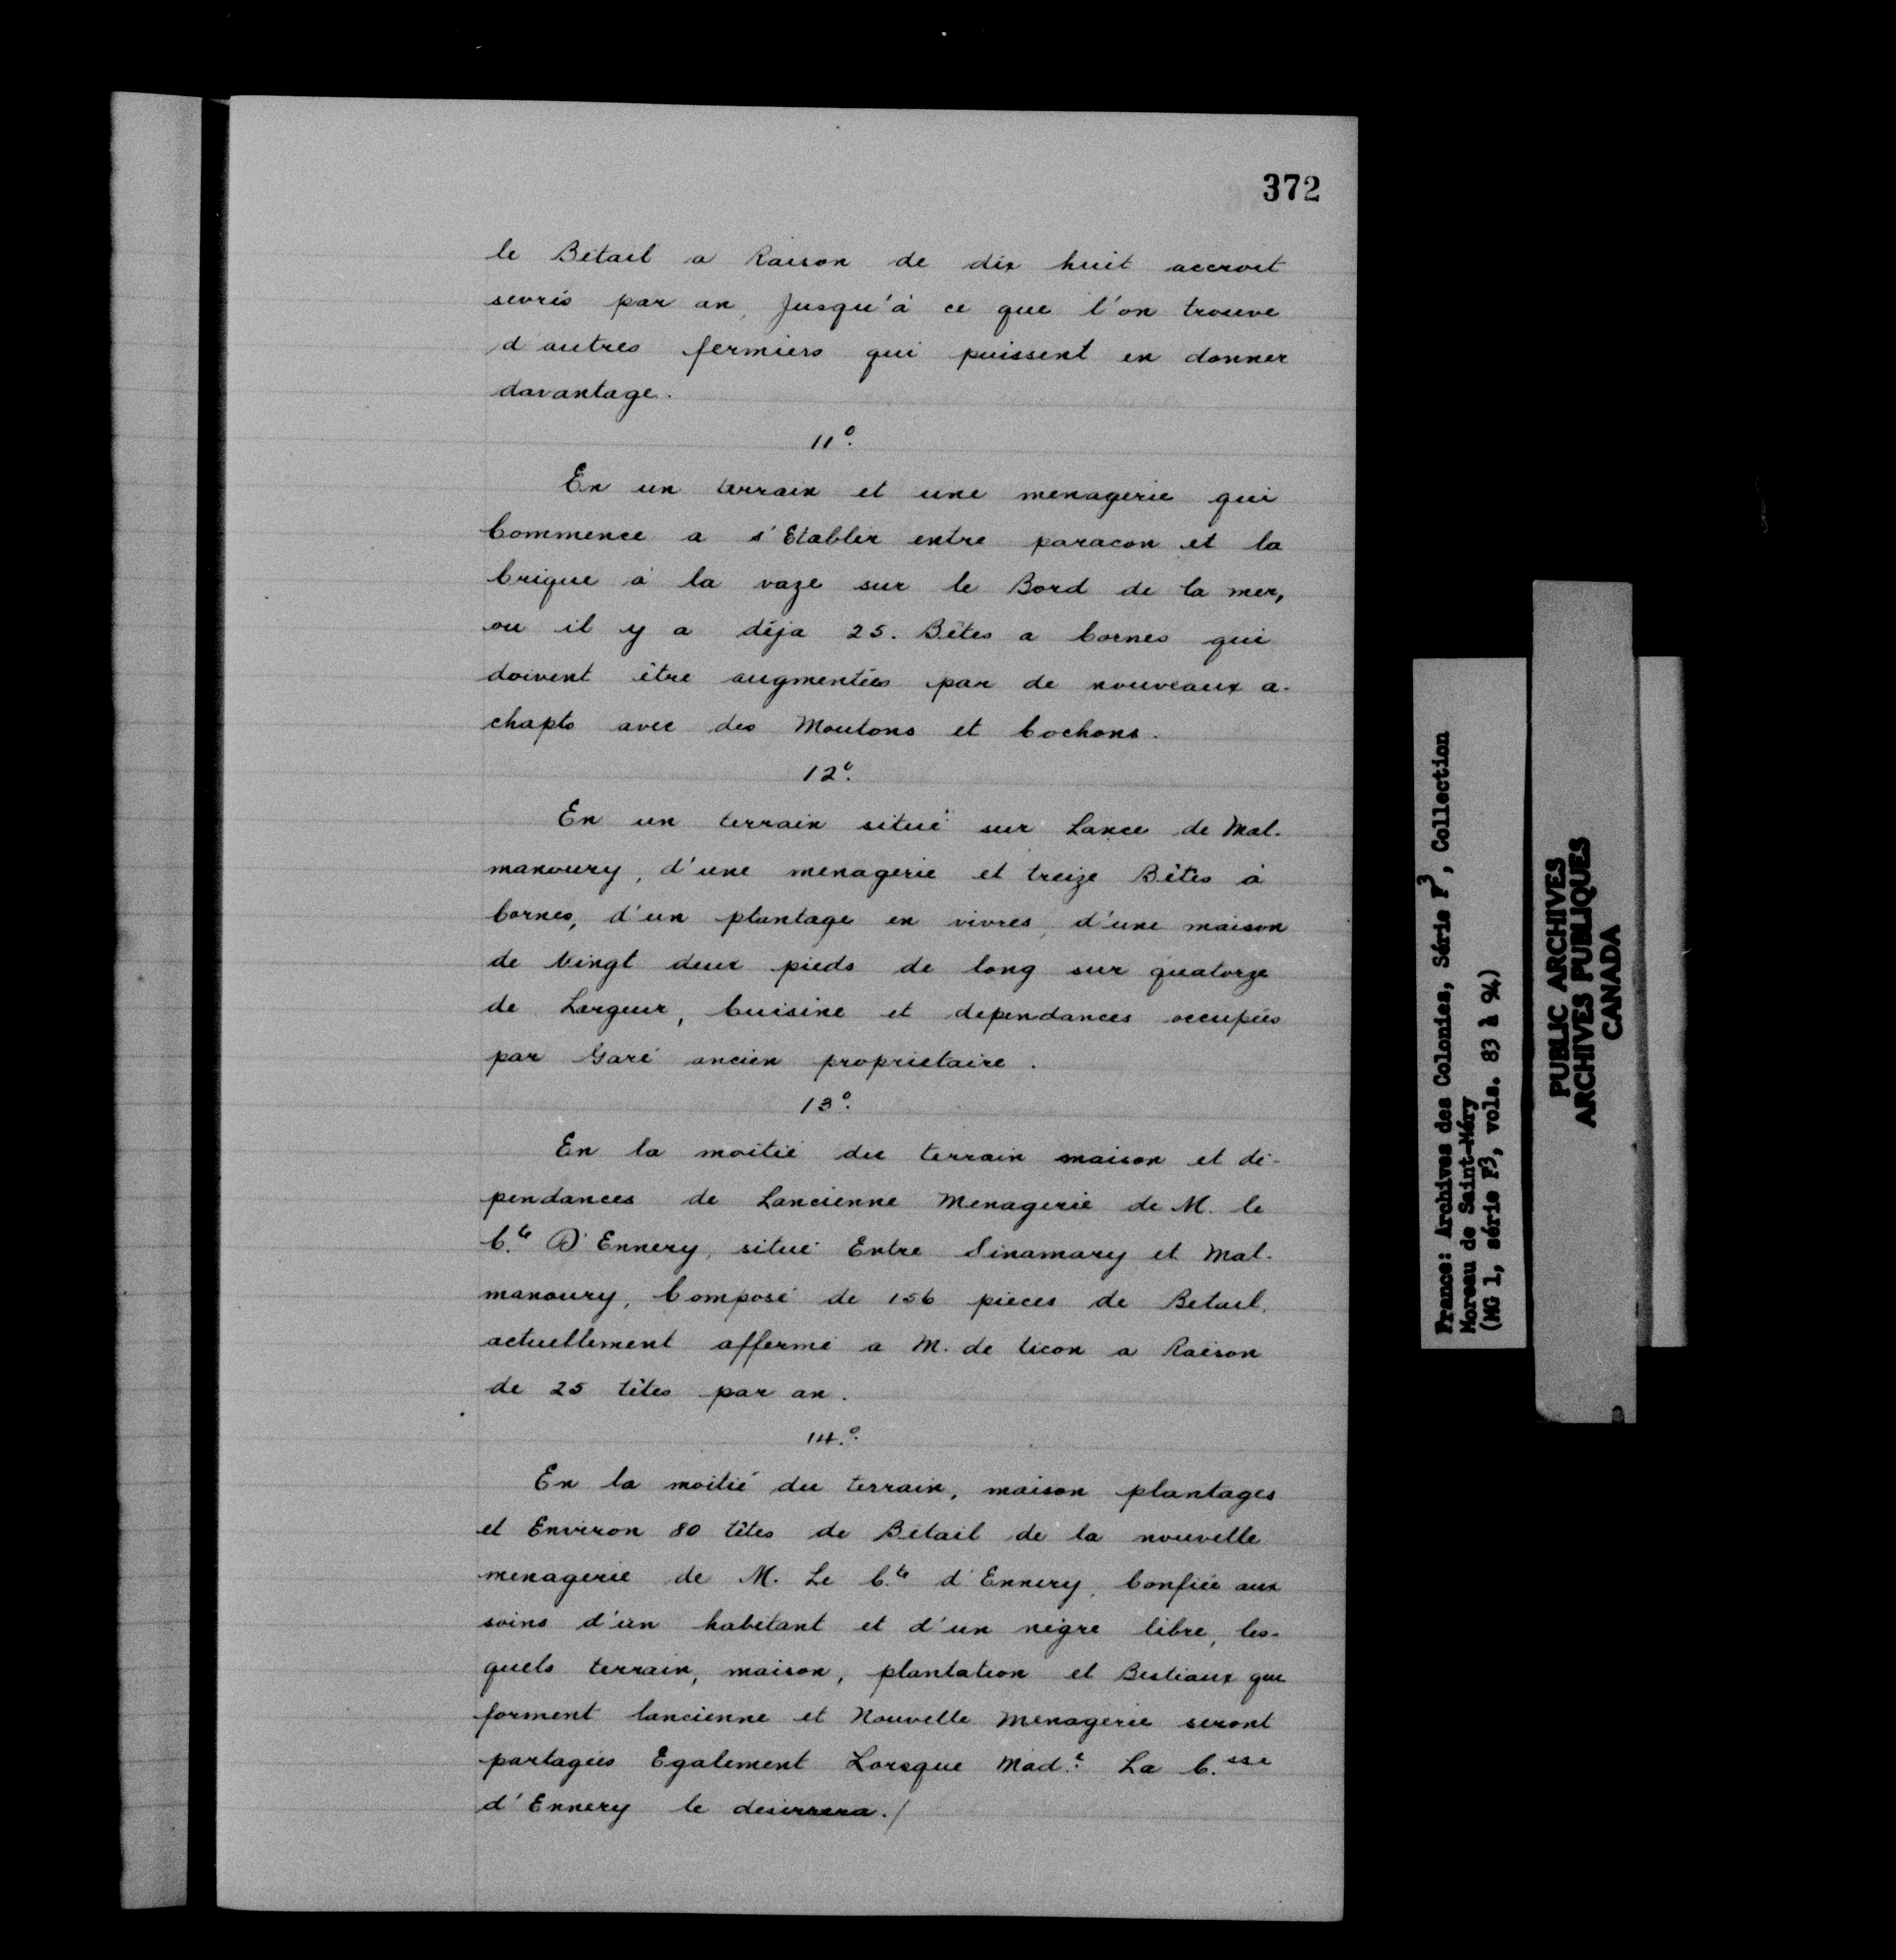 372
le Bétail a Raison de dix huit accroit
sevrés par an, jusqu'à ce que l'on trouve
d'autres fermiers qui puissent en donner
davantage.
11º.
En un terrain et une menagerie qui
Commence a s'Etablir entre paracon et la
Crique à la vaze sur le Bord de la mer,
ou il y a déja 25. Bêtes a Cornes qui
doivent être augmentées par de nouveaux a-
chapts avec des Moutons et Cochons.
12º.
En un terrain situé sur Lance de Mal-
manoury, d'une menagerie et treize Bêtes à
Cornes, d'un plantage en vivres, d'une maison
de Vingt deux pieds de long sur quatorze
de Largeur, Cuisine et dependances occupées
par Garé ancien proprietaire.
13º.
En la moitié du terrain maison et dé-
pendances de Lancienne Menagerie de M. le
C.te D'Ennery, situé Entre Sinamary et Mal-
manoury, Composé de 156 pieces de Betail,
actuellement affermé a M. de ticon a Raison
de 25 têtes par an.
14.º
En la moitié du terrain, maison plantages
et Environ 80 têtes de Bétail de la nouvelle
menagerie de M. Le C.te d'Ennery, Confiée aux
soins d'un habitant et d'un nègre libre, les-
quels terrain, maison, plantation et Bestiaux que
forment lancienne et Nouvelle Menagerie seront
partagées Egalement Lorsque Mad.e La C.sse
d'Ennery le desirrera./
France: Archives des Colonies, Série F3, Collection
Moreau de Saint-Méry
(MG 1, série F3, vols. 83 à 94)
PUBLIC ARCHIVES
ARCHIVES PUBLIQUES
CANADA